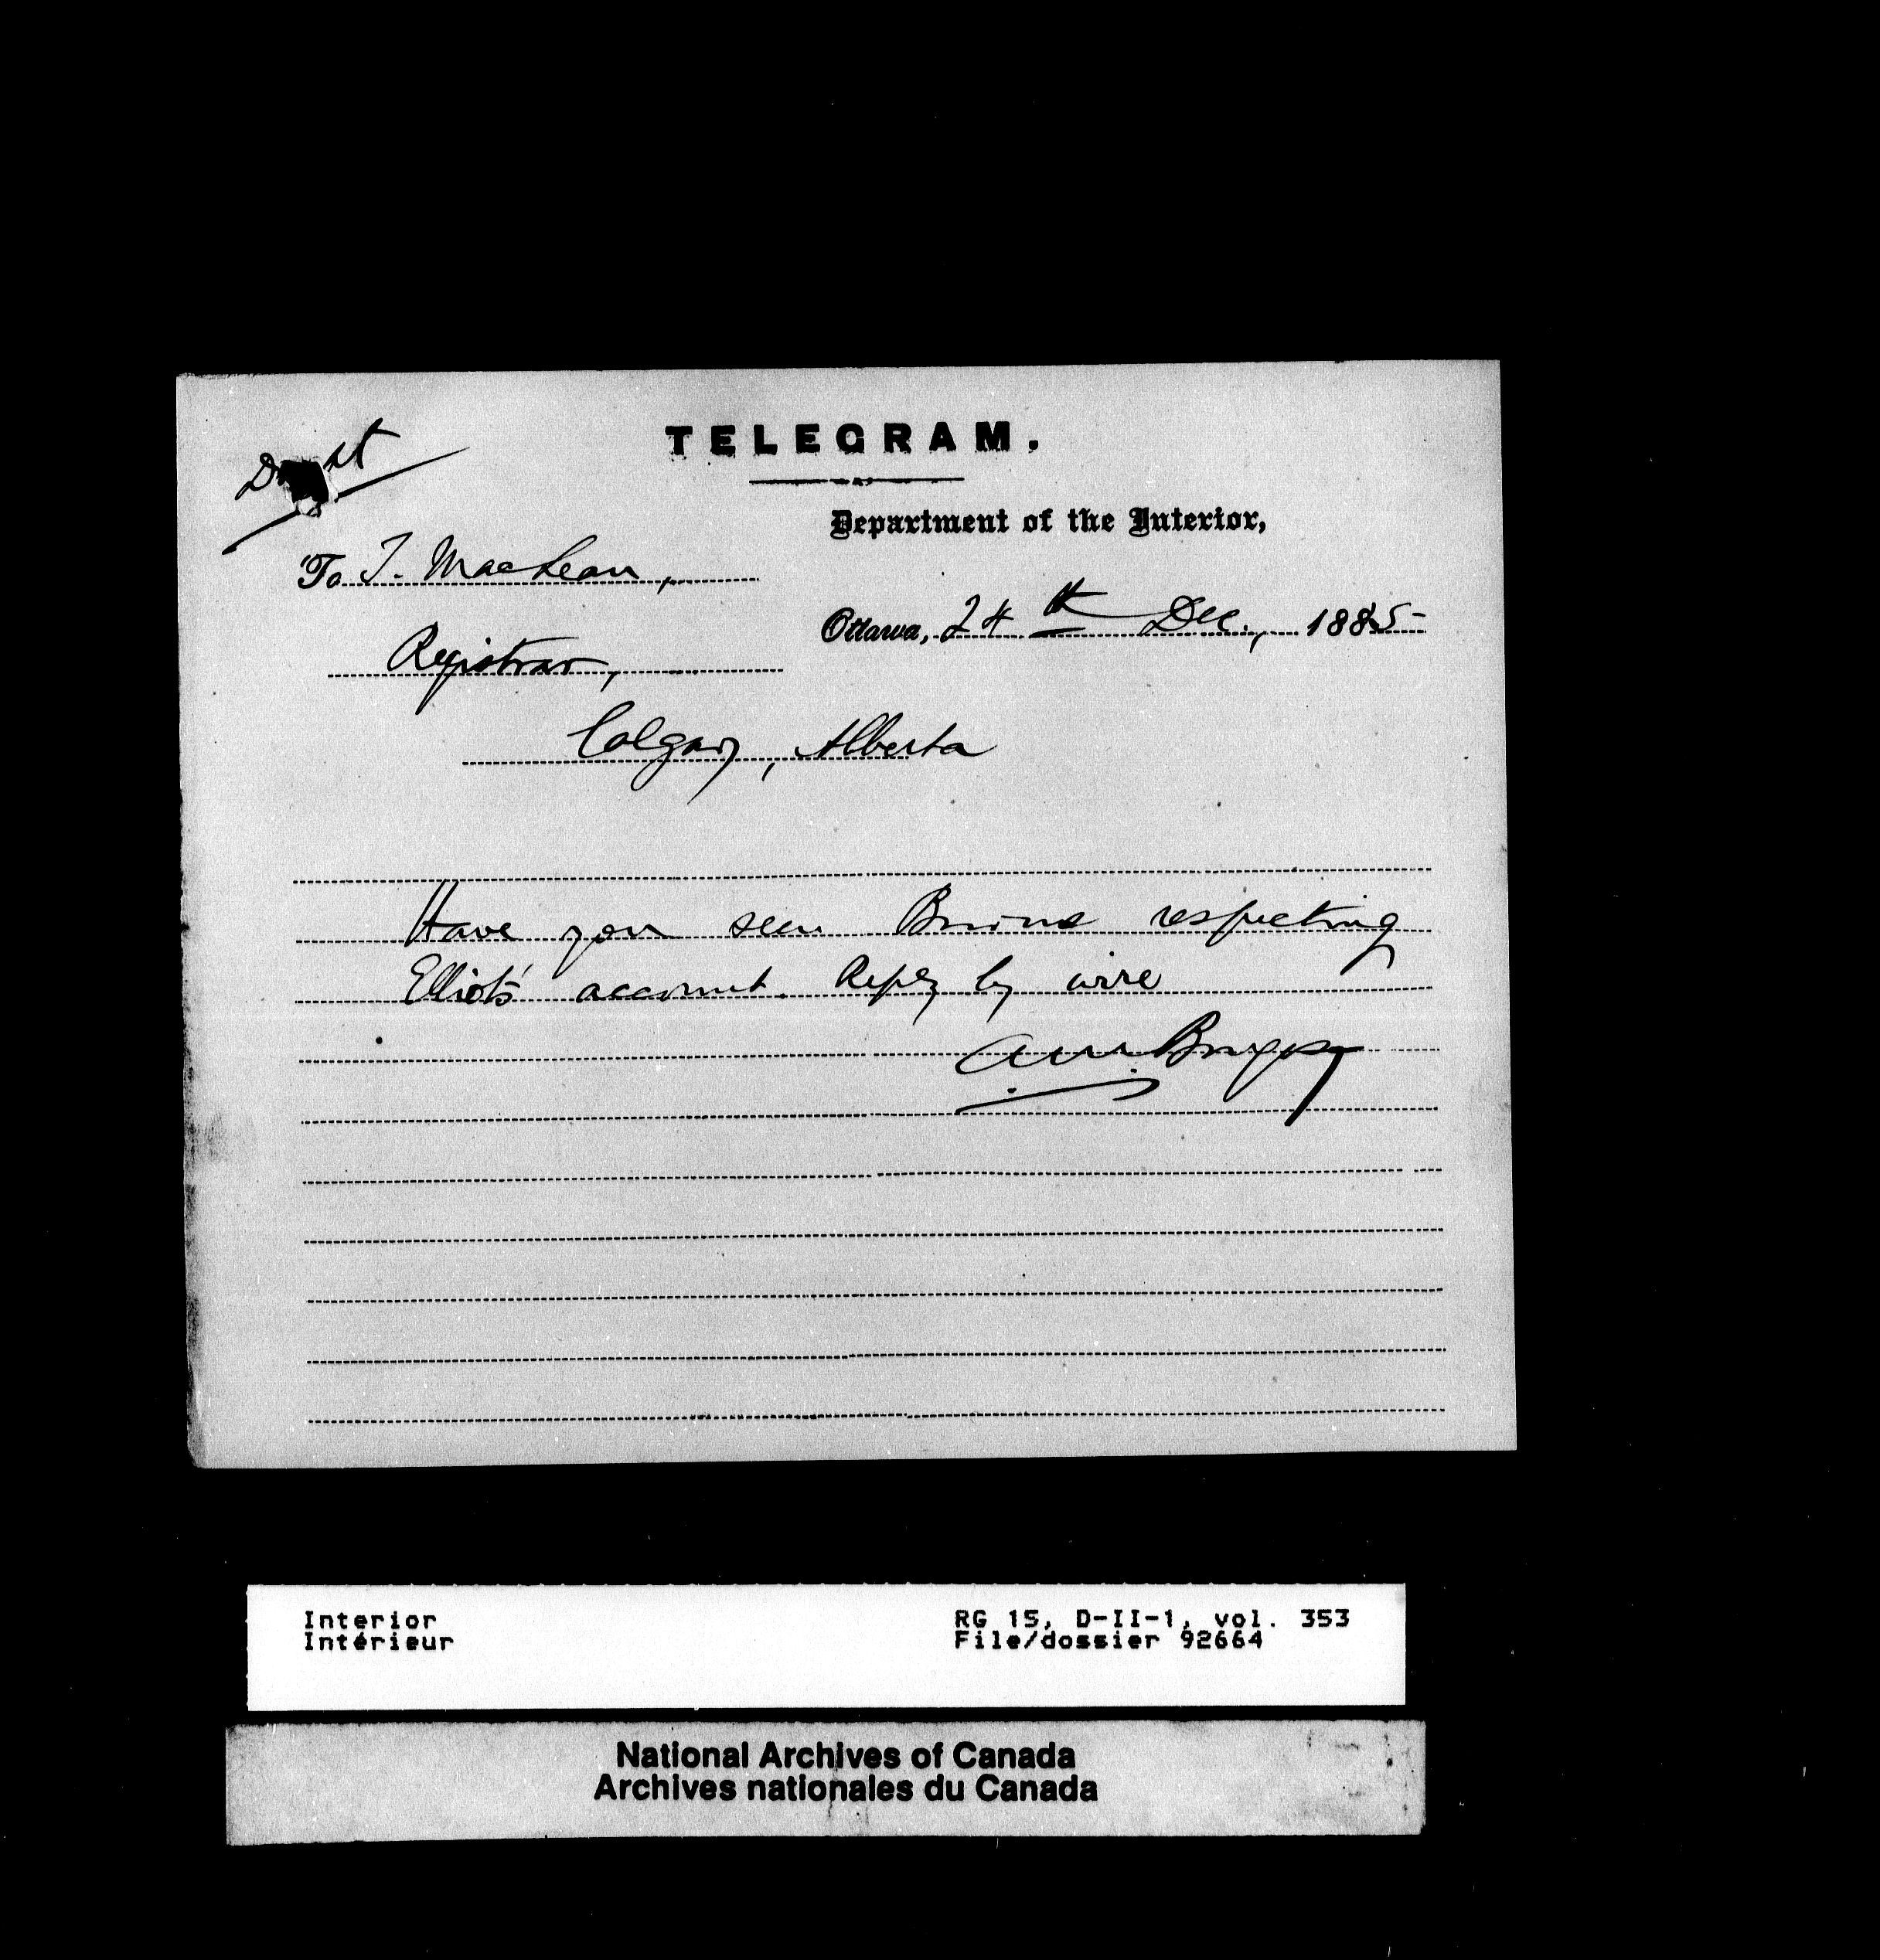 TELEGRAM.
Department of the Interior,
To J. MacLean,
Ottawa, 24th Dec., 1885
Registrar,
Calgary, Alberta
Have you seen respecting
Elliot's account. Reply by wire
Interior
Intérieur
RG 15, D-II-1, vol. 353
File/dossier 92664
National Archives of Canada
Archives nationales du Canada